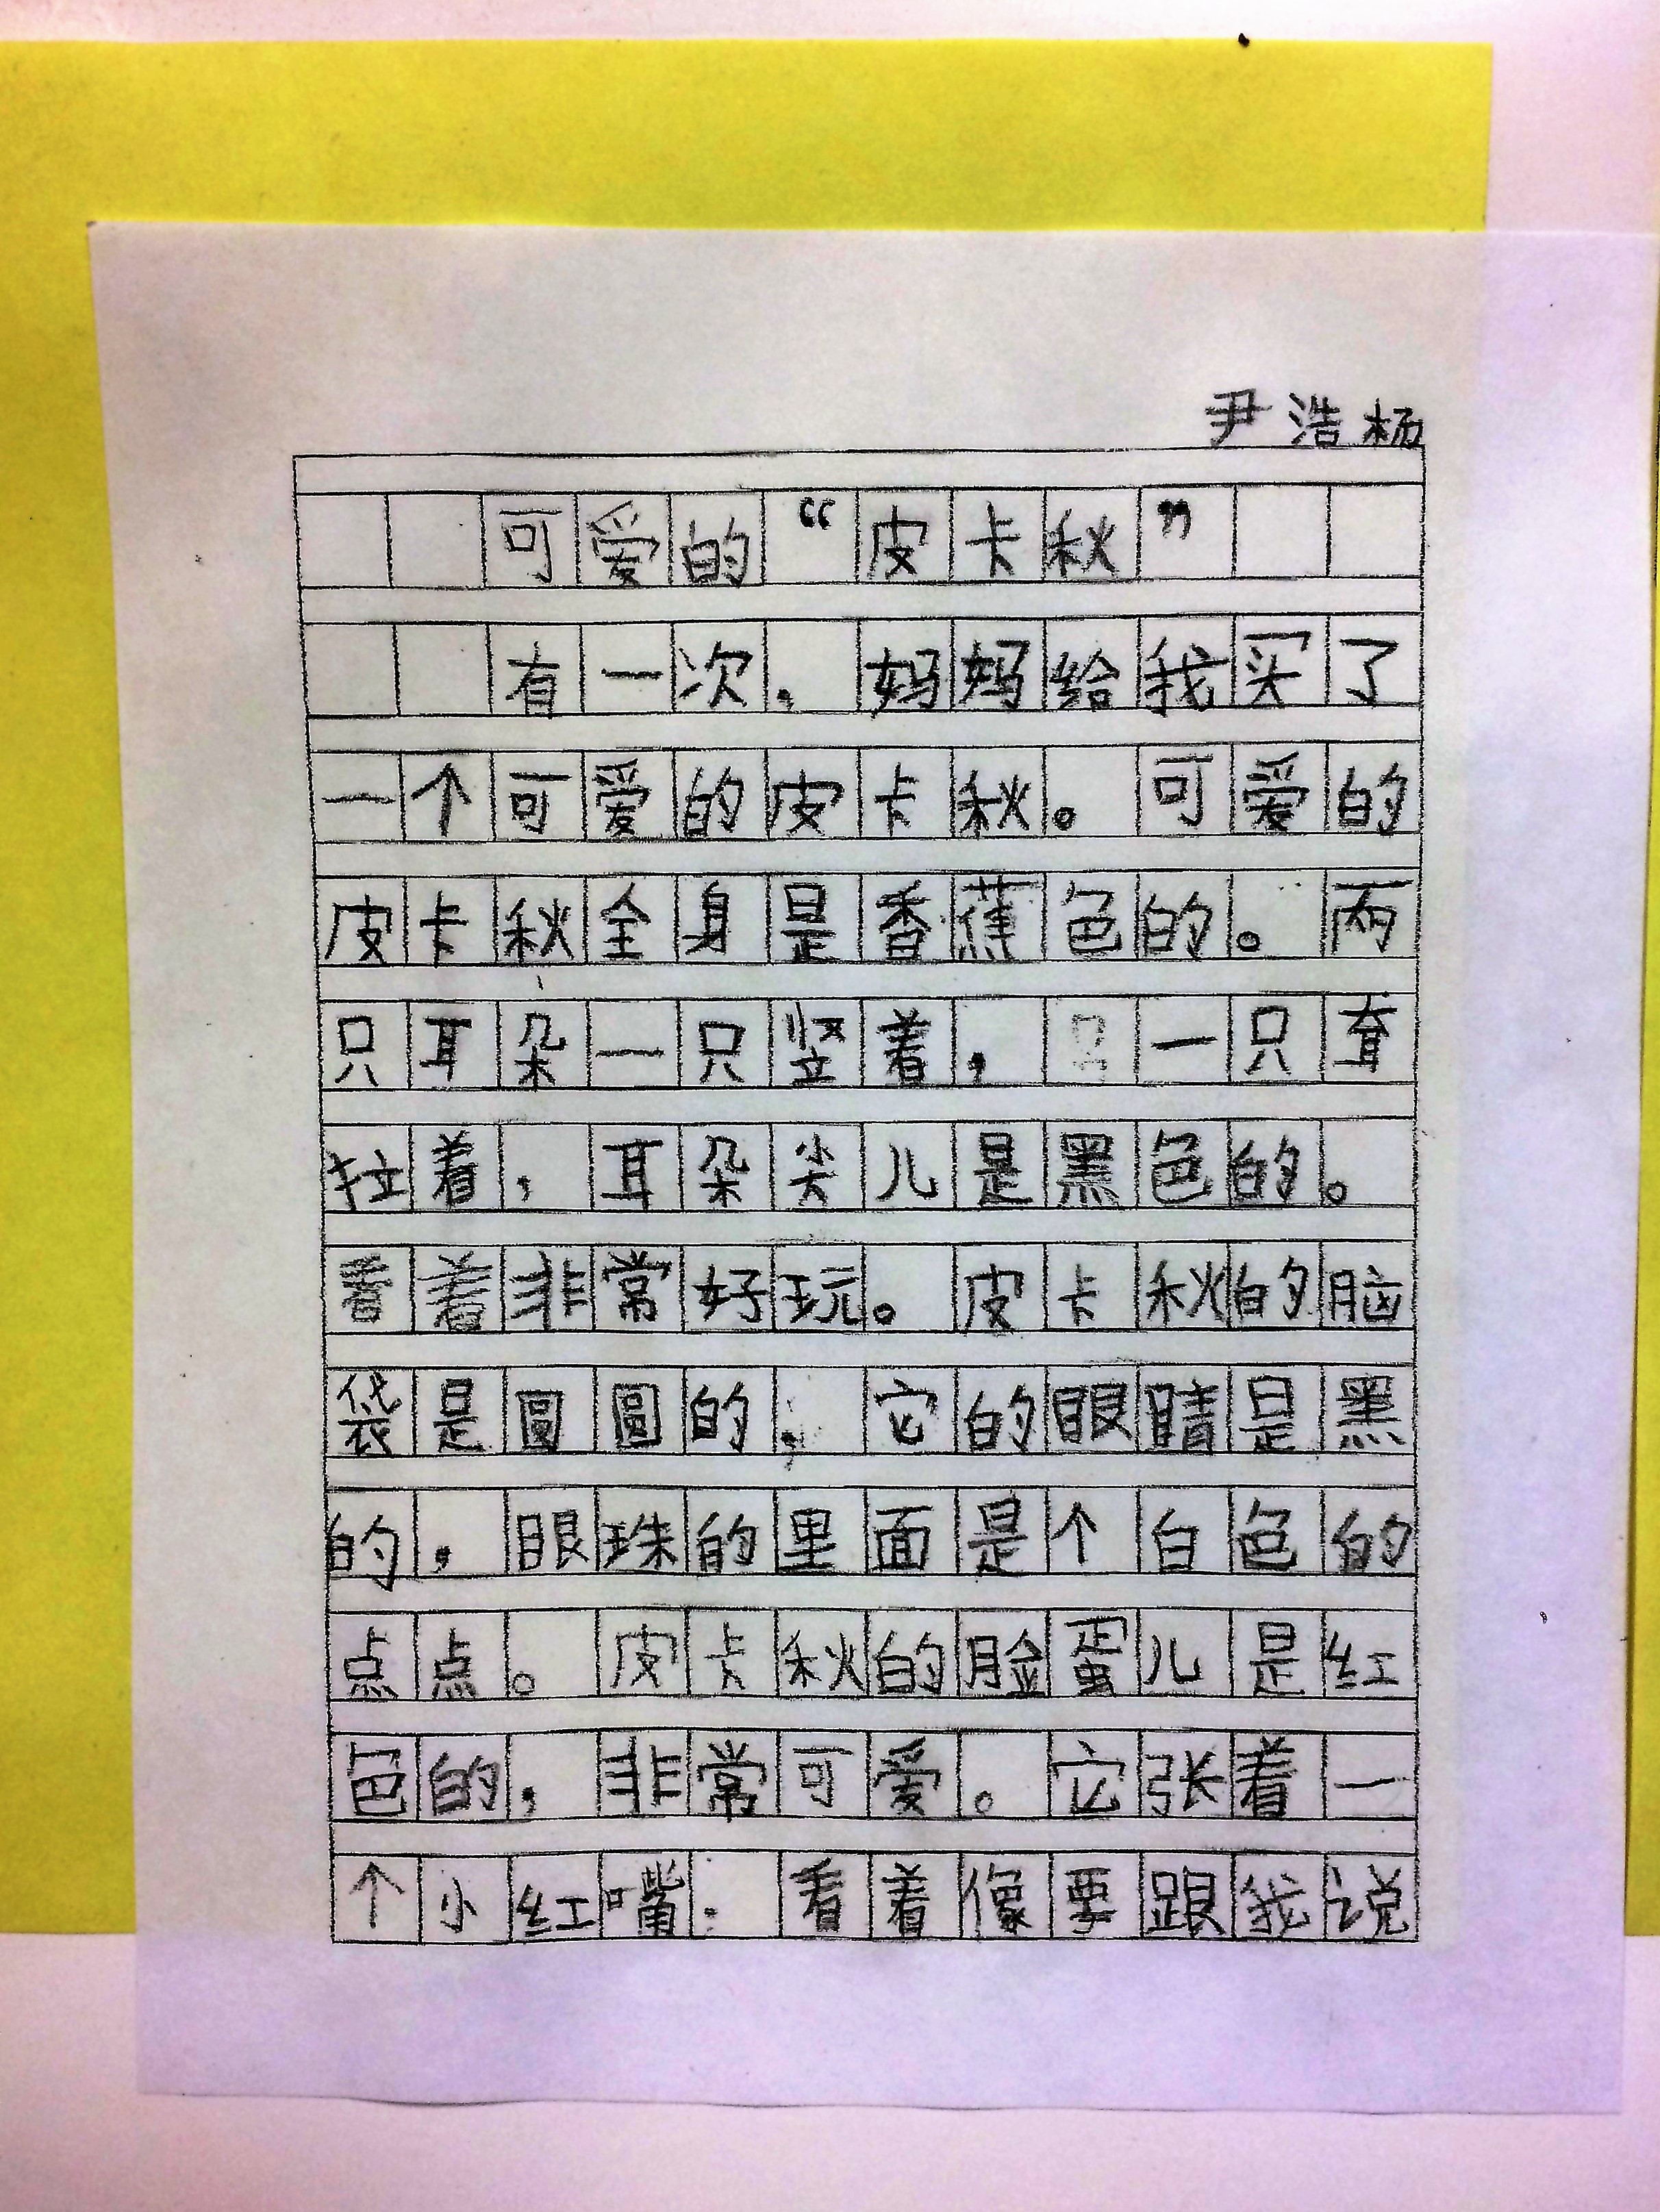 尹浩杨
可爱的“皮卡秋”
有一次，妈妈给我买了
一个可爱的皮卡秋。可爱的
皮卡秋全身是香蕉色的。两
只耳朵一只竖着，一只耷
拉着，耳朵尖儿是黑色的。
看着非常好玩。皮卡秋的脑
袋是圆圆的，它的眼睛是黑
的，眼珠的里面是个白色的
点点。皮卡秋的脸蛋儿是红
色的，非常可爱。它张着一
个小红嘴，看着像要跟我说